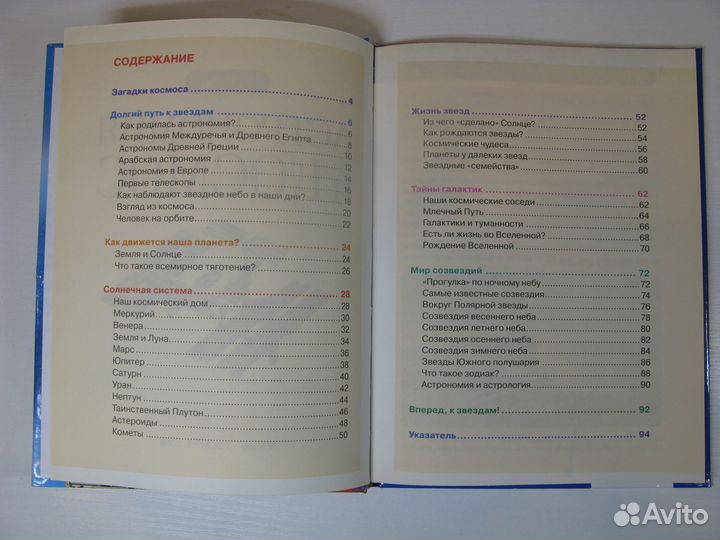 СОДЕРЖАНИЕ
Загадки космоса 4
Долгий путь к звездам 6
Как родилась астрономия? 6
Астрономия Междуречья и Древнего Египта 8
Астрономы Древней Греции 10
Арабская астрономия 12
Астрономия в Европе 14
Первые телескопы 16
Как наблюдают звездное небо в наши дни? 18
Взгляд из космоса 20
Человек на орбите 22
Как движется наша планета? 24
Земля и Солнце 24
Что такое всемирное тяготение? 26
Солнечная система 28
Наш космический дом 28
Меркурий 30
Венера 32
Земля и Луна 34
Марс 36
Юпитер 38
Сатурн 40
Уран 42
Нептун 44
Таинственный Плутон 46
Астероиды 48
Кометы 50
Жизнь звезд 52
Из чего «сделано» Солнце? 52
Как рождаются звезды? 54
Космические чудеса 56
Планеты у далеких звезд 58
Звездные «семейства» 60
Тайны галактик 62
Наши космические соседи 62
Млечный Путь 64
Галактики и туманности 66
Есть ли жизнь во Вселенной? 68
Рождение Вселенной 70
Мир созвездий 72
«Прогулка» по ночному небу 72
Самые известные созвездия 74
Вокруг Полярной звезды 76
Созвездия весеннего неба 78
Созвездия летнего неба 80
Созвездия осеннего неба 82
Созвездия зимнего неба 84
Звезды Южного полушария 86
Что такое зодиак? 88
Астрономия и астрология 90
Вперед, к звездам! 92
Указатель 94
Avito